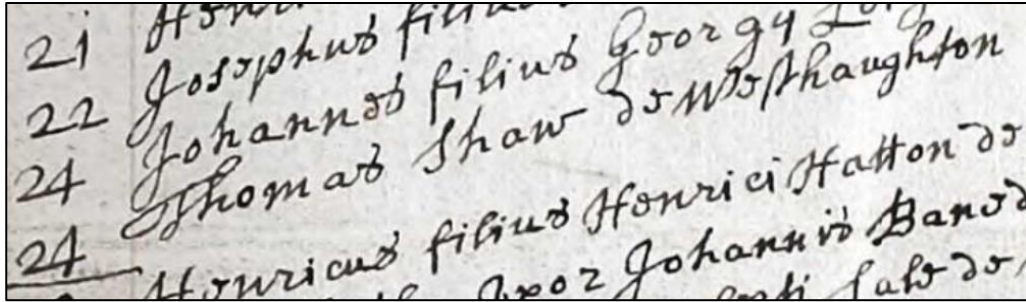 21 Josephus filius
22 Johannes filius Georgy
24 Thomas Shaw de Westhaughton
24 Henricus filius Henrici Hatton de
Uxor Johannis
de